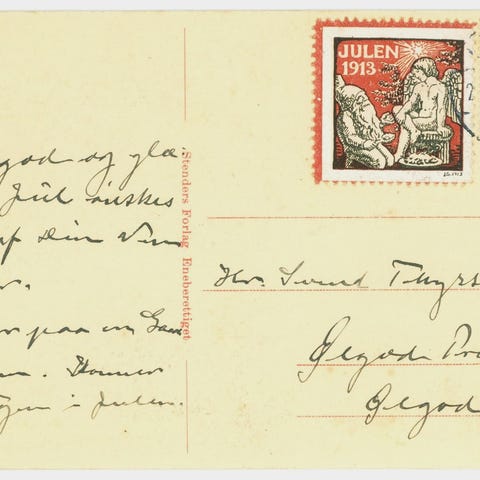 god og glæ-
Jul ønskes
af Din Ven
paa en
i Julen.
Stenders Forlag Eneberettiget
JULEN
1913
2
Hr. Svend Thyrs
Ølgod Pr
Ølgod